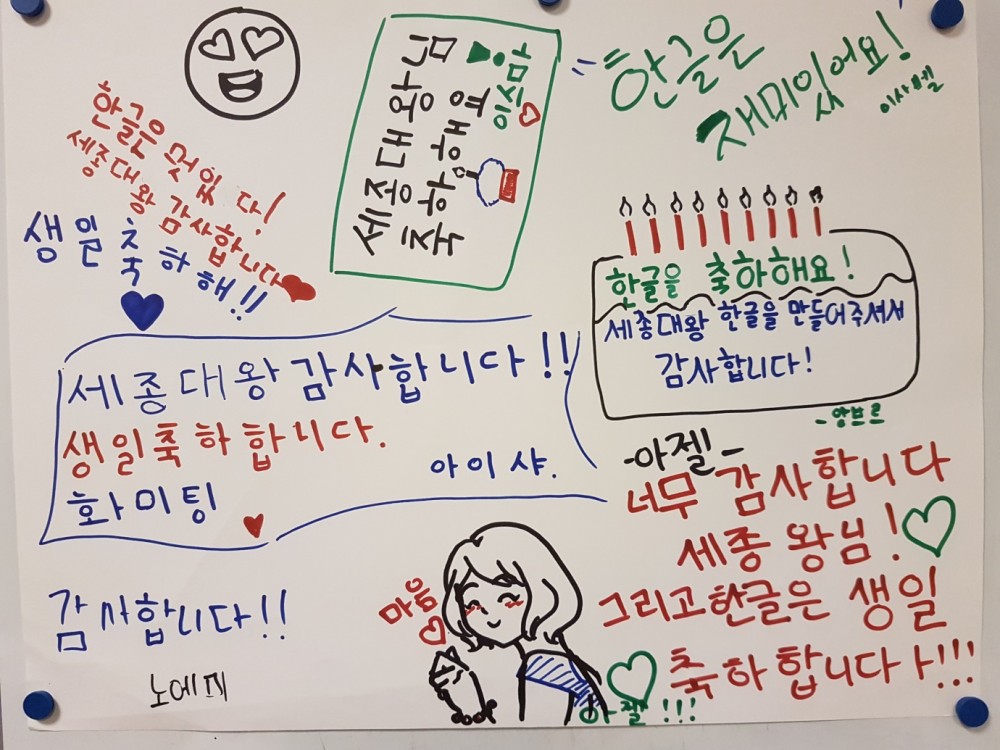 한글은 멋있다!
세종대왕 감사합니다
생일 축하해!!
세종대왕님
축하해
한글은
재미있어요!
이사벨
한글을 축하해요!
세종대왕 한글을 만들어주셔서
감사합니다!
-앙브르
세종대왕 감사합니다!!
생일축하합니다.
화미팅
아이샤.
-아젤-
너무 감사합니다
세종 왕님!
그리고 한글은 생일
축하합니다!!!
감사합니다!!
마음
아젤!!!